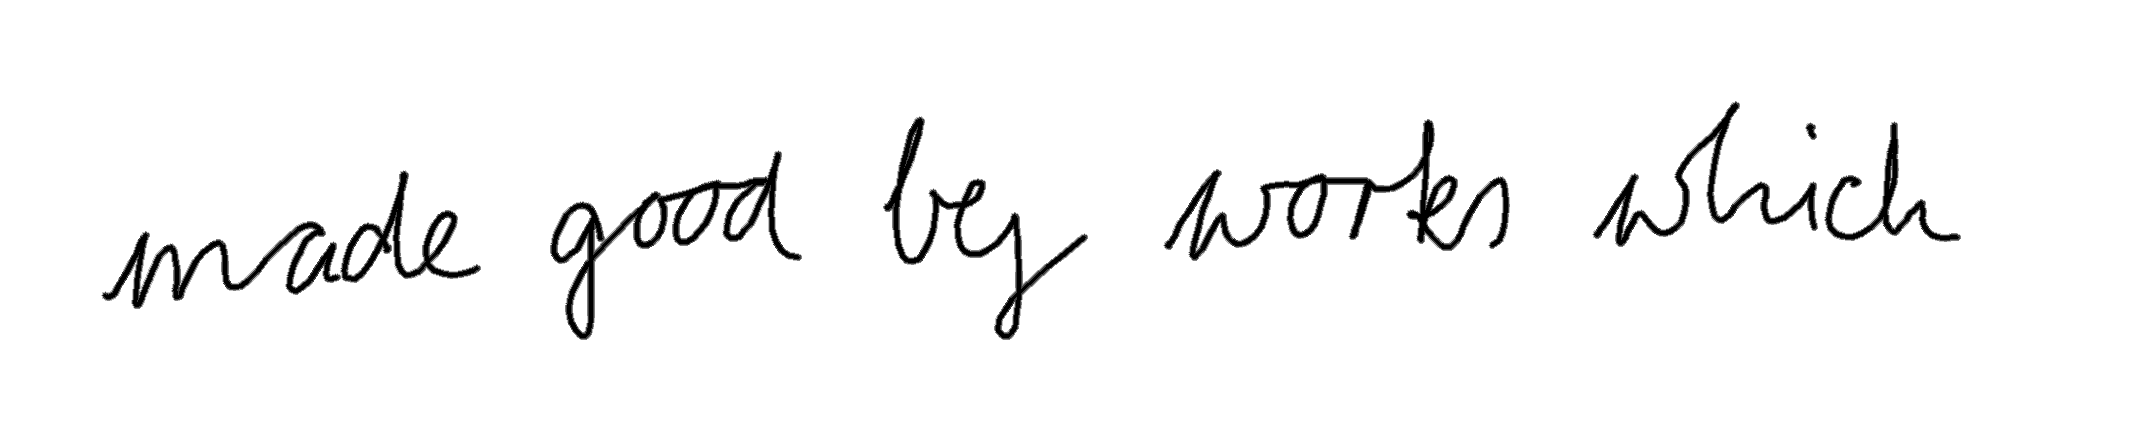 made good by works which